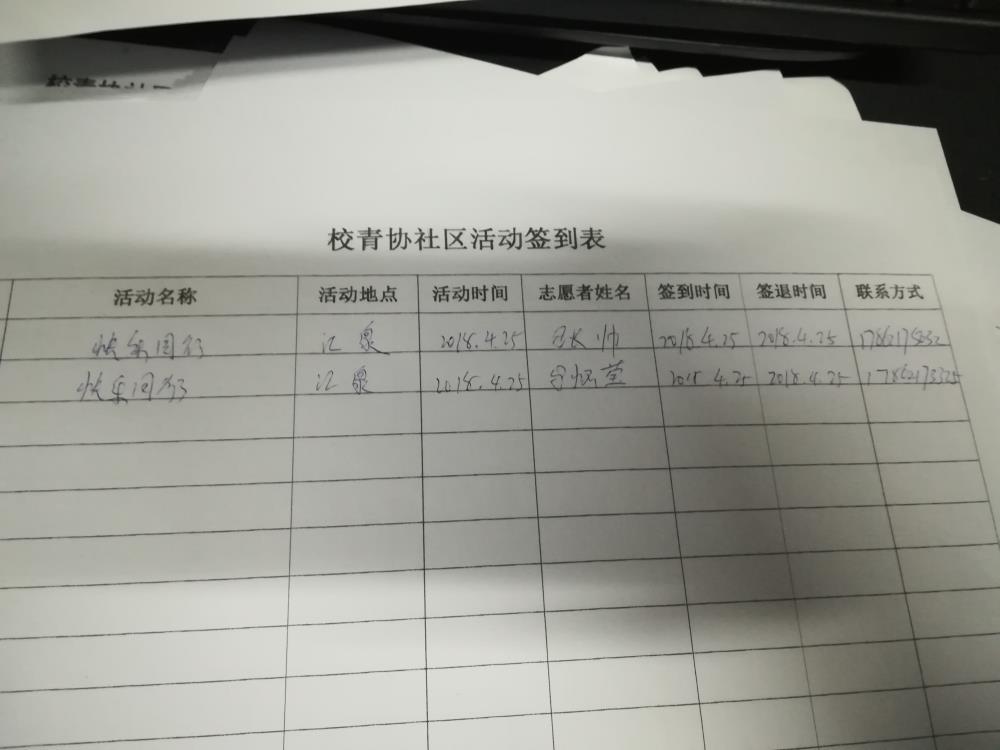 校青协社区
校青协社区活动签到表
活动名称 活动地点 活动时间 志愿者姓名 签到时间 签退时间 联系方式
快乐同行 汇泉 2018.4.25 2018.4.25 2018.4.25
快乐同行 汇泉 2018.4.25 2018.4.25 2018.4.25 17862173325